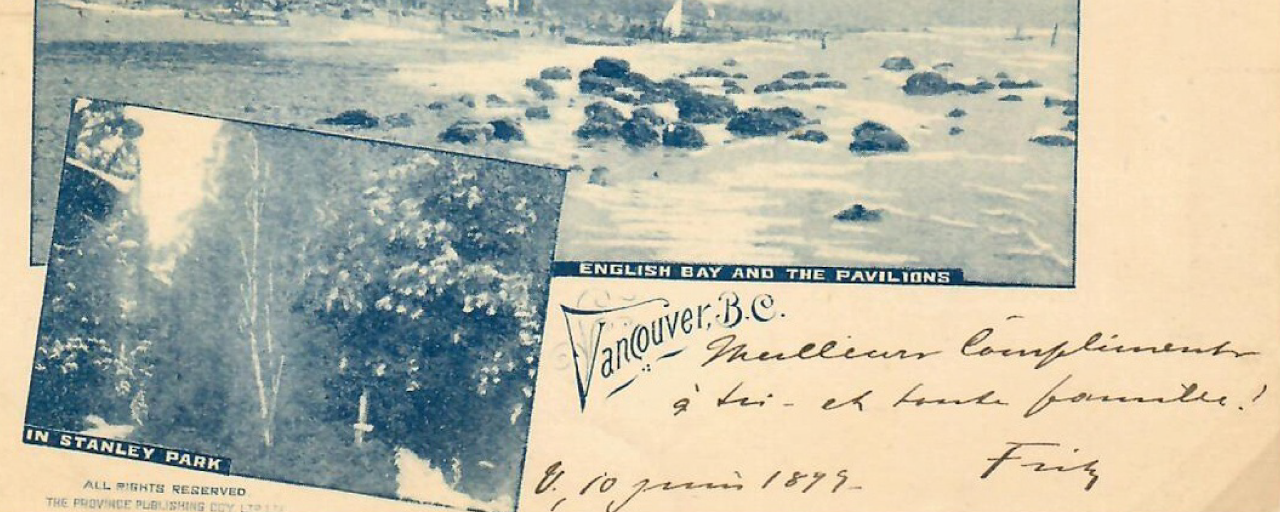 ENGLISH BAY AND THE PAVILIONS
Vancouver, B.C.
Meilleurs Compliments
à toi - et toute famille!
Fritz
V, 10 juin 1899
IN STANLEY PARK
ALL RIGHTS RESERVED
THE PROVINCE PUBLISHING COY LTD